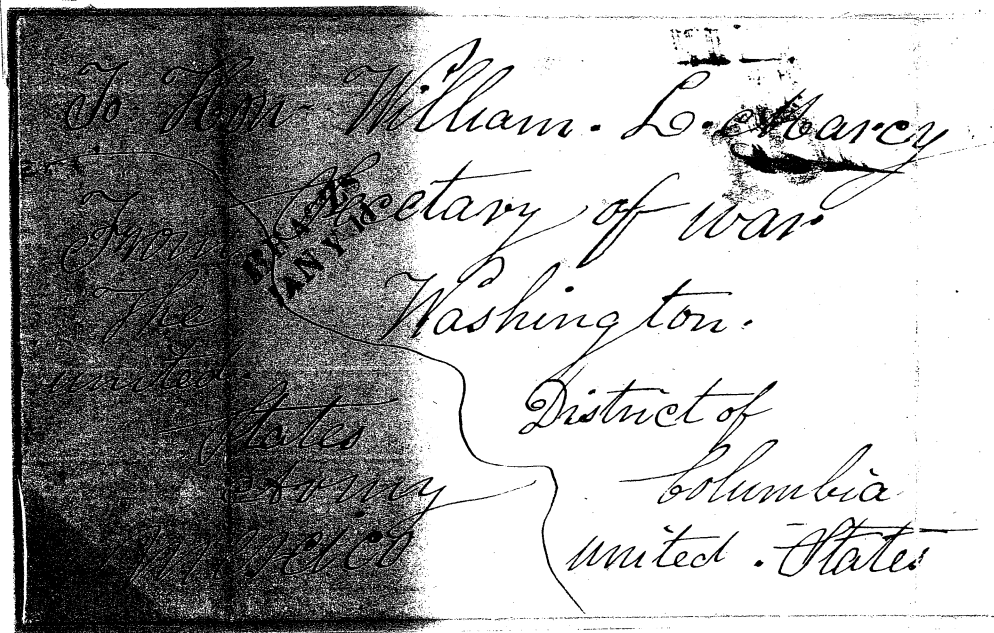 To Hon William. L. Marcy
Secretary of war
Washington.
District of
Columbia
united. States
From
The
united.
States
Army
Mexico
JAN Y 10